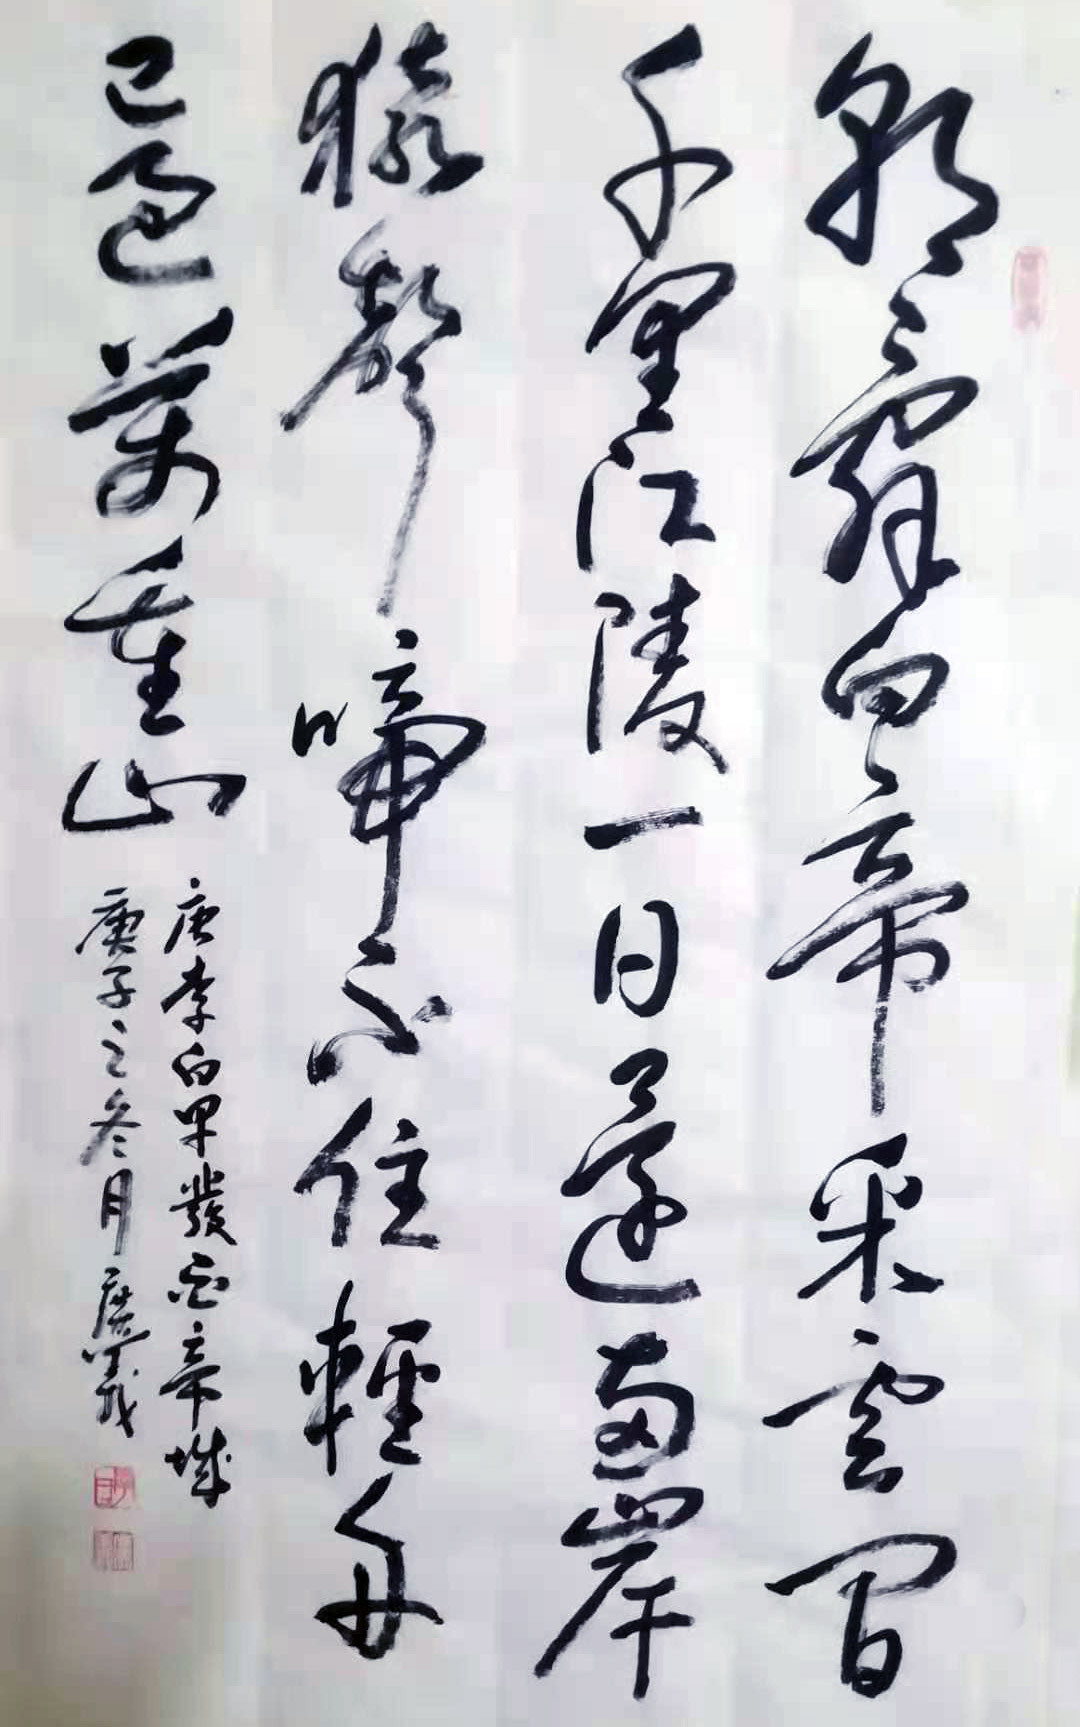 朝辭白帝采雲間
千里江陵一日還兩岸
猿聲啼不住輕舟
已過萬重山
唐李白早發白帝城
庚子之冬月廣義